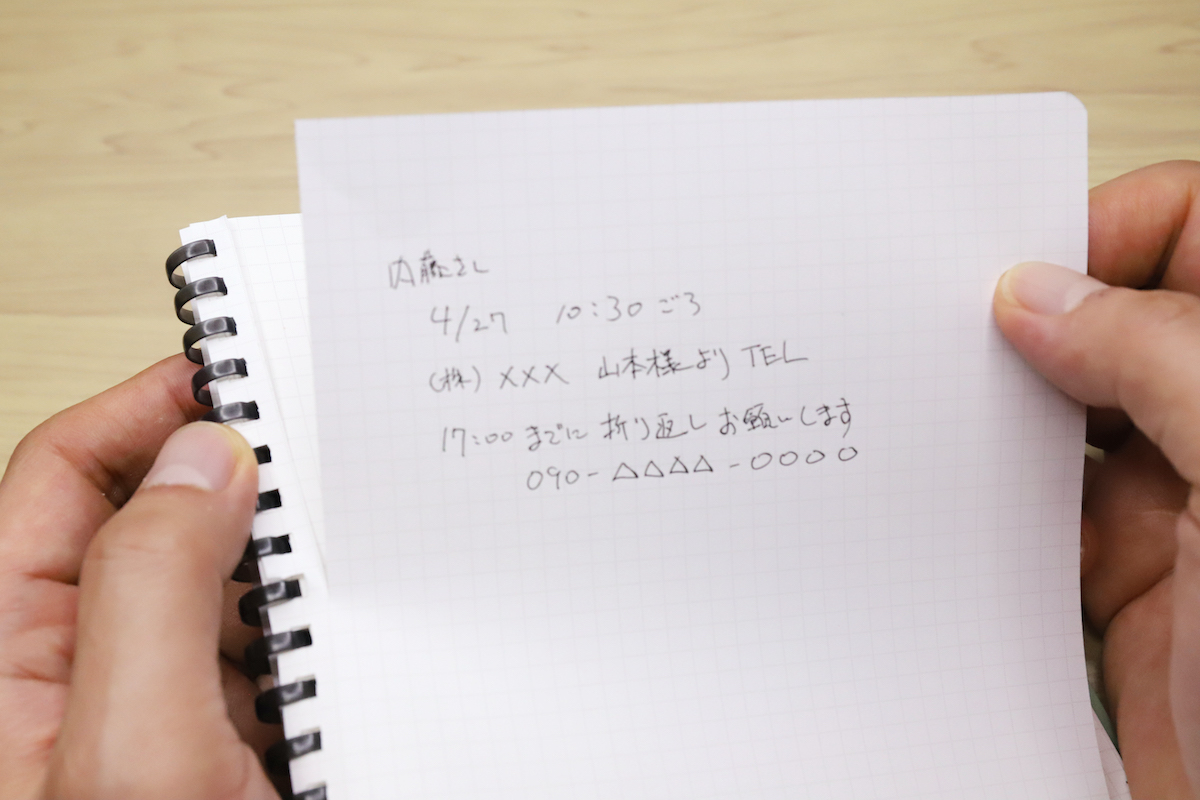 内藤さん
4/27 10:30ごろ
(株)××× 山本様よりTEL
17:00までに折り返しお願いします
090-△△△△-○○○○